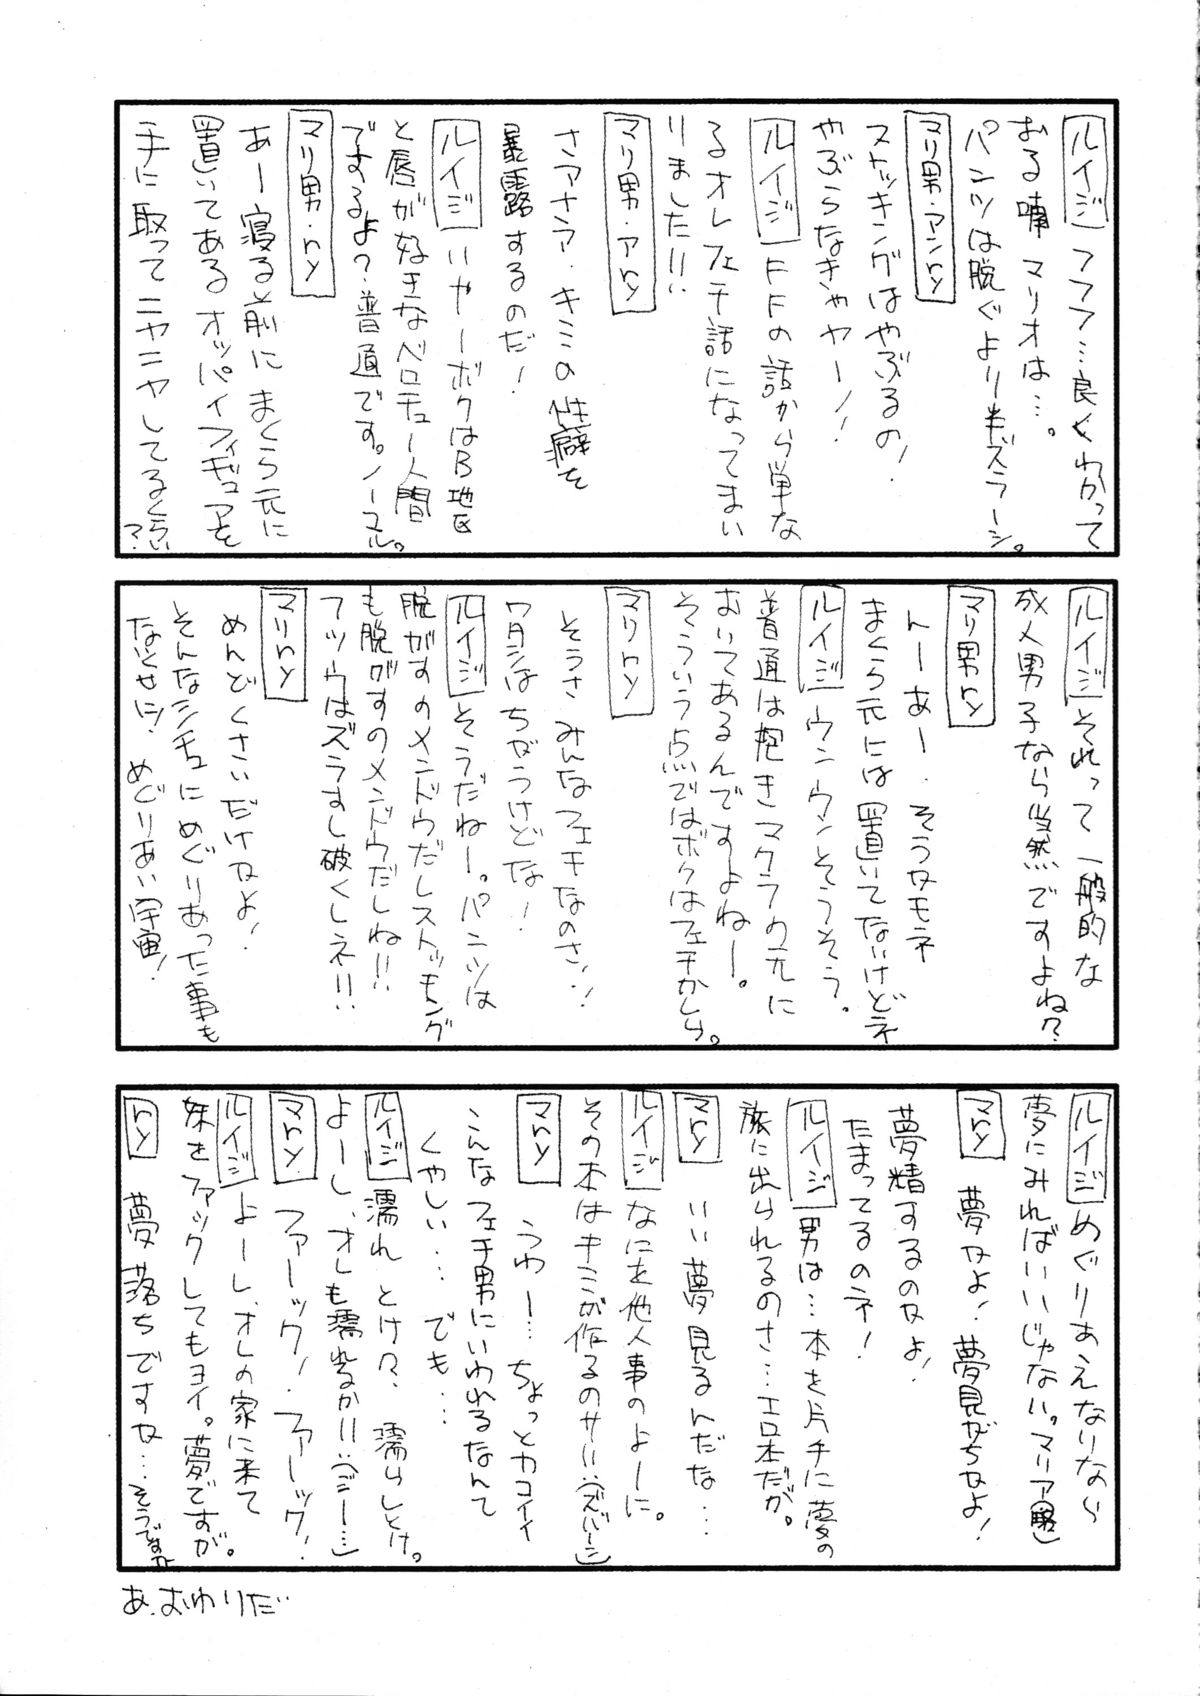 ルイジ フフフ…良くわかって
おる喃 マリオは…。
パンツは脱ぐより半ズラーシ。
マリ男・アンry
ストッキングはやぶるの！
やぶらなきゃヤー！！
ルイジ FFの話から単な
るオレフェチ話になってまい
りました!!!
マリ男・アry
さアナア・キミの性癖を
暴露するのだ！
ルイジ いやーボクはB地区
と唇が好きなベロチュー人間
ですよ？普通です。ノーマル。
マリ男・ry
あー寝る前にまくら元に
置いてあるオッパイフィギュアを
手に取ってニヤニヤしてるくらい
？
ルイジ それって一般的な
成人男子なら当然ですよね？
マリ男ry
んーあー・そうなモネ
まくら元には置いてないけどネ
ルイジ ウンウンそうそう。
普通は抱きマクラの元に
おいてあるんですよねー。
そういう点ではボクはフェチかしら。
マリry
そうさみんなフェチなのさ！！
ワタシはちがうけどな！
ルイジ そうだねー。パンツは
脱がすのメンドウだしストッキング
も脱がすのメンドウだしね!!
フツウはズラすし破くしネ!!!
マリry
めんどくさいだけなよ！
そんなシチュにめぐりあった事も
なくせに！めぐりあい宇宙！
ルイジ めぐりあえないなら
夢にみればいいじゃない。マリア(略)
マry 夢なよ！夢見がちなよ！
夢精するのなよ！
たまってるのネ！
ルイジ 男は…本を片手に夢の
旅に出られるのさ…エロ本だが。
マry いい夢見るんだな…
ルイジ なにを他人事のよーに。
その本はキミが作るのサ!!(ズバーン)
マry うわー…ちょっとカコイイ
こんなフェチ男にいわれるなんて
くやしい…でも…
ルイジ 濡れとけ々、濡らしとけ。
よーし、オレも濡れるか!!(ジー…)
マry ファーック！ファーック！
ルイジ よーし、オレの家に来て
妹をファックしてもヨイ。夢ですが。
ry 夢落ちですな…そうですな
あ、おわりだ